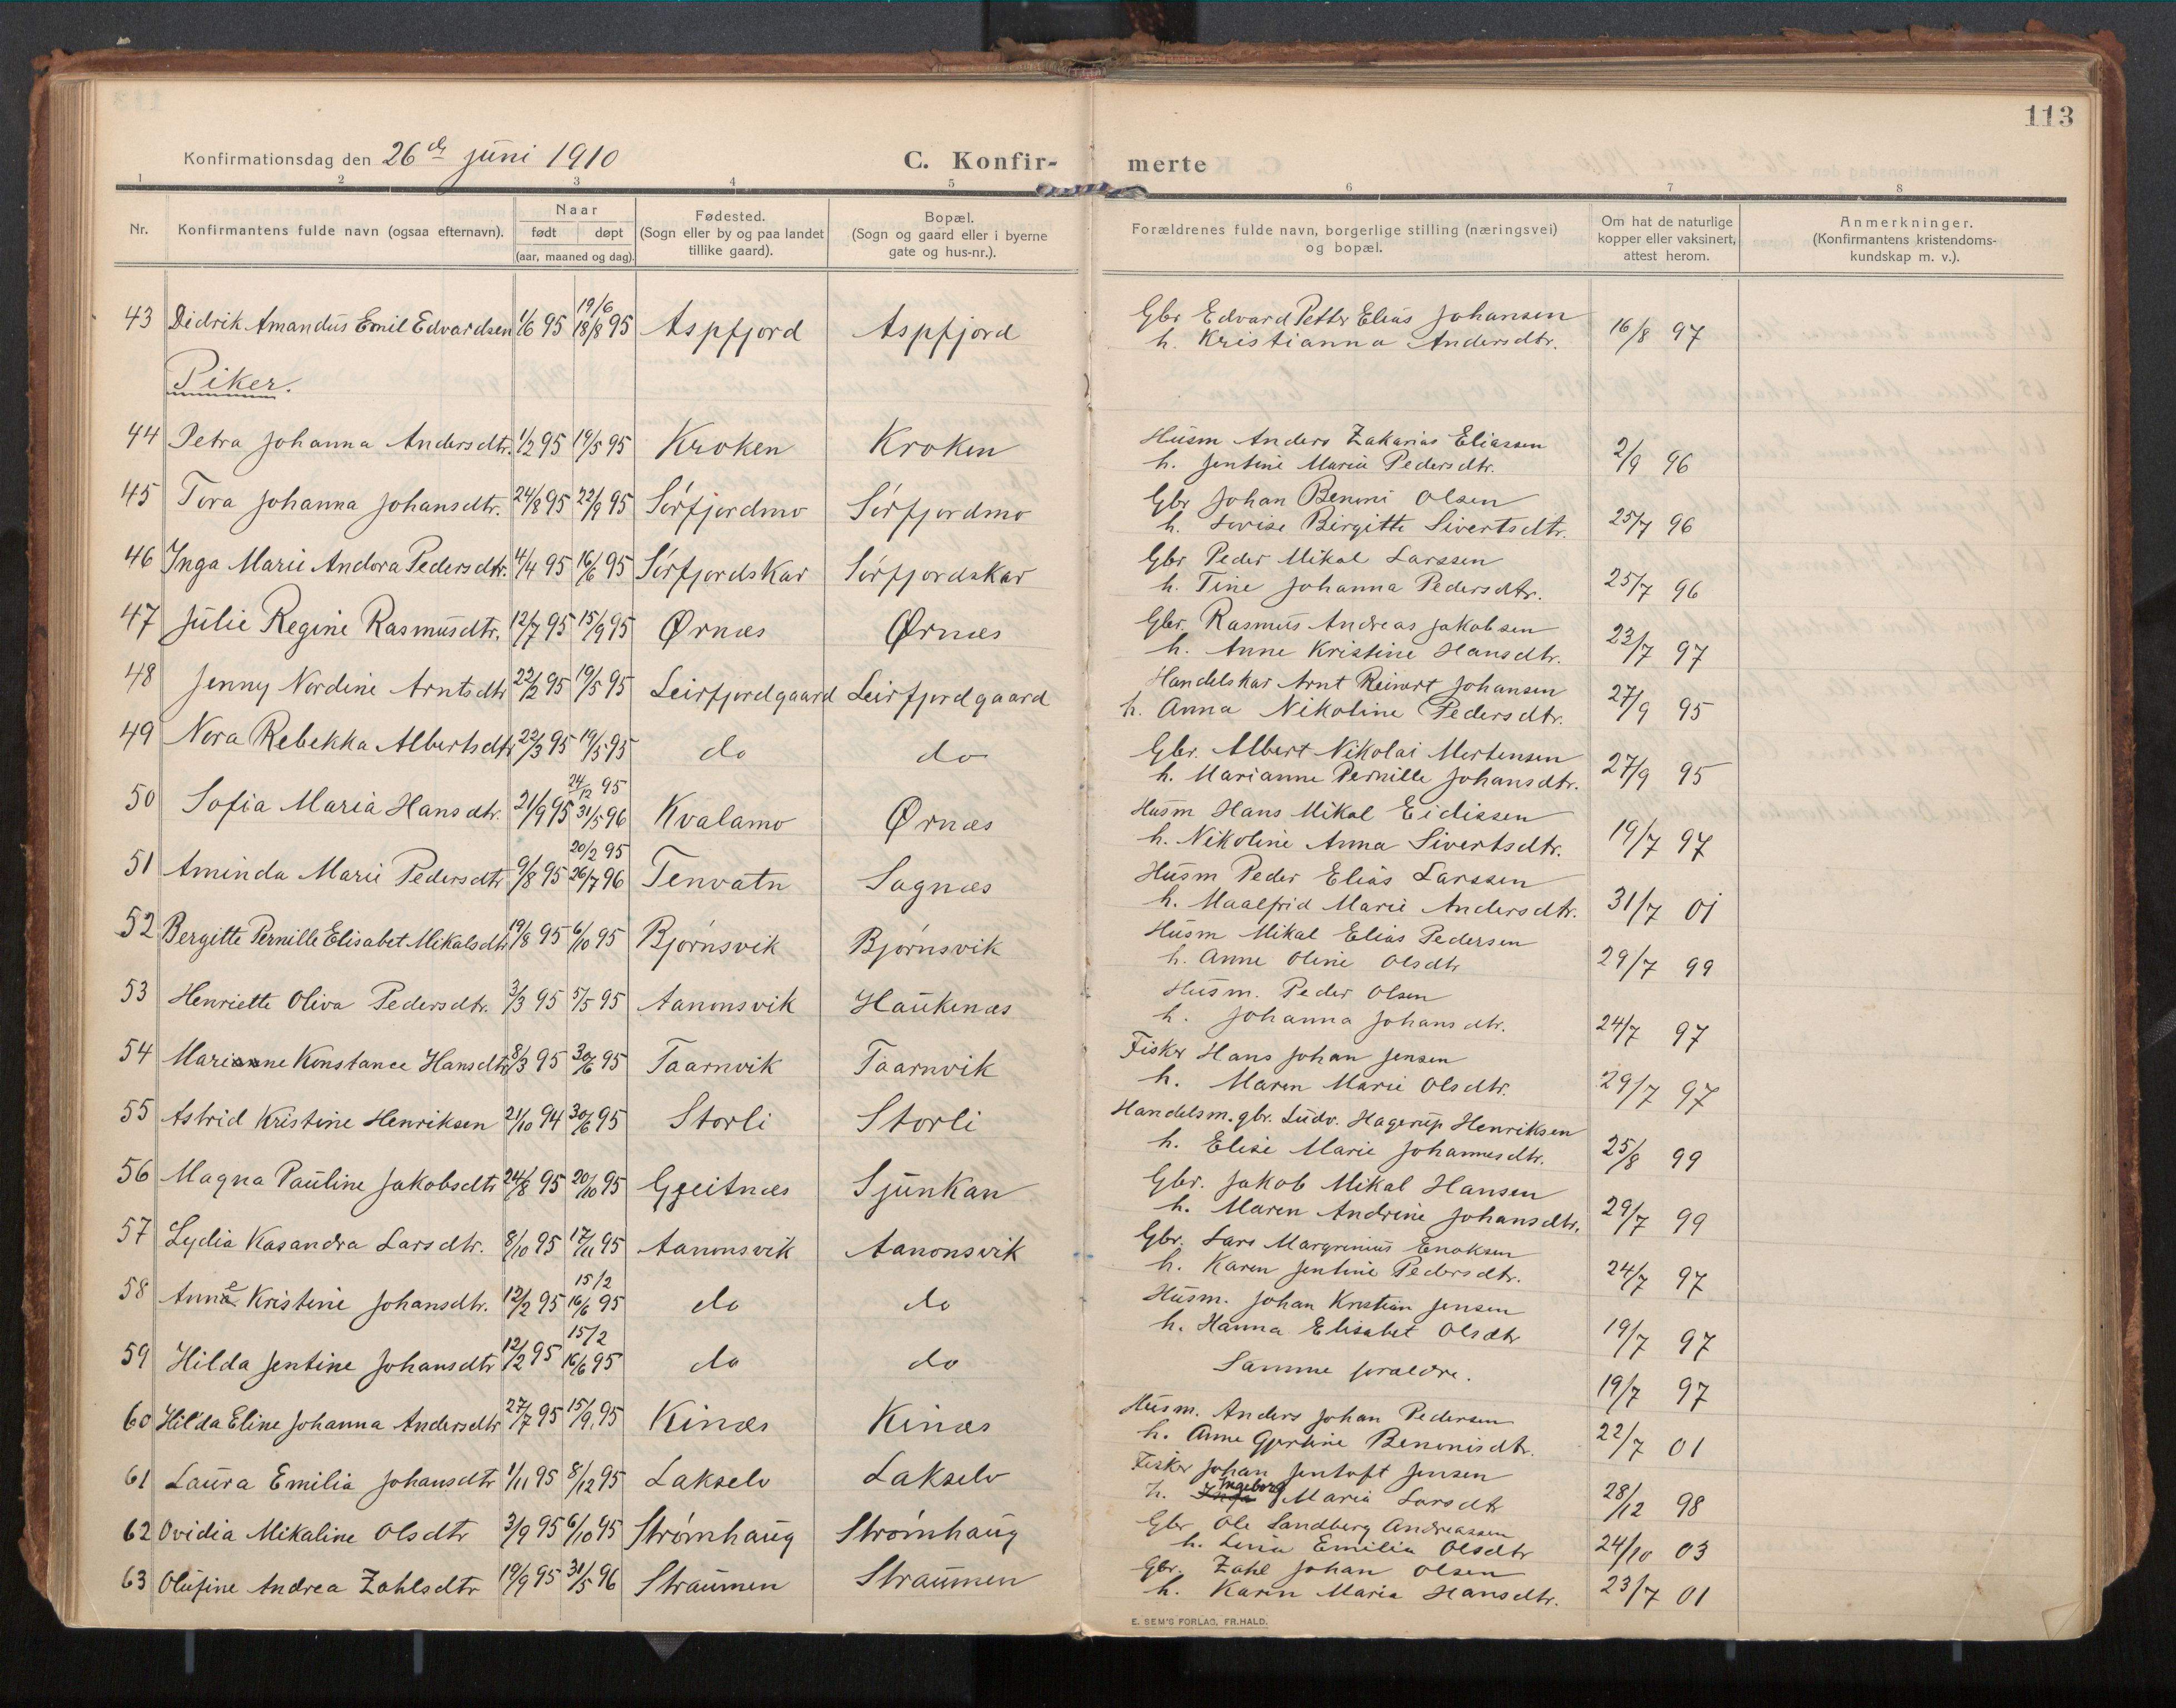 113
Konfirmationsdag den 26de juni 1910 C. Konfir- merte
1 2 3 4 5 6 7 8
Nr. Konfirmantens fulde navn (ogsaa efternavn). Naar født døpt (aar, maaned og dag). Fødested. (Sogn eller by og paa landet tillike gaard). Bopæl. (Sogn og gaard eller i byerne gate og hus-nr.). Forældrenes fulde navn, borgerlige stilling (næringsvei) og bopæl. Om hat de naturlige kopper eller vaksinert, attest herom. Anmerkninger. (Konfirmantens kristendoms-kundskap m. v.).
43 Didrik Amandus Emil Edvardsen 1/6 95 19/6 18/8 95 Aspfjord Aspfjord Gbr Edvard Petter Elias Johansen
h. Kristianna Andersdtr. 16/8 97
Piker.
44 Petra Johanna Andersdtr. 1/2 95 19/5 95 Kroken Kroken Husm Anders Zakarias Eliassen
h. Jentine Marie Pedersdtr. 2/9 96
45 Tora Johanna Johansdtr. 24/8 95 22/9 95 Sørfjordmo Sørfjordmo Gbr Johan Benoni Olsen
h. Lovise Birgitte Sivertsdtr. 25/7 96
46 Inga Marie Andora Pedersdtr. 4/4 95 16/6 95 Sørfjordskar Sørfjordskar Gbr Peder Mikal Larssen
h. Tine Johanna Pedersdtr. 25/7 96
47 Julie Regine Rasmusdtr. 12/7 95 15/9 95 Ørnæs Ørnæs Gbr. Rasmus Andreas Jakobsen
h. Anne Kristine Hansdtr. 23/7 97
48 Jenny Nordine Arntsdtr 22/2 95 19/5 95 Leirfjordgaard Leirfjordgaard Handelskar Arnt Reinert Johansen
h. Anna Nikoline Pedersdtr. 27/9 95
49 Nora Rebekka Albertsdtr 22/3 95 19/5 95 do do Gbr. Albert Nikolai Mortensen
h. Marianne Pernille Johansdtr. 27/9 95
50 Sofia Maria Hansdtr. 21/9 95 24/12 95 31/5 96 Kvalamo Ørnæs Husm Hans Mikal Eidissen
h. Nikoline Anna Sivertsdtr. 19/7 97
51 Aminda Marie Pedersdtr 9/8 95 20/2 95 26/7 96 Tenvatn Sagnæs Husm Peder Elias Larssen
h. Maalfrid Marie Andersdtr. 31/7 01
52 Bergitte Pernille Elisabet Mikalsdtr 19/8 95 6/10 95 Bjørnsvik Bjørnsvik Husm Mikal Elias Pedersen
h. Anne Oline Olsdtr 29/7 99
53 Henriette Oliva Pedersdtr. 3/3 95 5/5 95 Aanonsvik Haukenæs Husm. Peder Olsen
h. Johanna Johansdtr. 24/7 97
54 Marianne Konstance Hansdtr 8/3 95 30/6 95 Taarnvik Taarnvik Fisker Hans Johan Jensen
h. Maren Marie Olsdtr. 29/7 97
55 Astrid Kristine Henriksen 21/10 94 30/6 95 Storli Storli Handelsm. gbr. Ludv. Hagerup Henriksen
h. Elise Marie Johannesdtr. 25/8 99
56 Magna Pauline Jakobsdtr 24/8 95 20/10 95 Gjeitnæs Sjunkan Gbr. Jakob Mikal Hansen
h. Maren Andrine Johansdtr. 29/7 99
57 Lydia Kasandra Larsdtr. 8/10 95 17/11 95 Aanonsvik Aanonsvik Gbr. Lars Margrinius Enoksen
h. Karen Jentine Pedersdtr. 24/7 97
58 Anne Kristine Johansdtr. 12/2 95 15/2 16/6 95 do do Husm. Johan Kristian Jensen
h. Hanna Elisabet Olsdtr 19/7 97
59 Hilda Jentine Johansdtr 12/2 95 15/2 16/6 95 do do Samme foraeldre. 19/7 97
60 Hilda Eline Johanna Andersdtr 27/7 95 15/9 95 Kinæs Kinæs Husm. Anders Johan Pedersen
h. Anne Gjertine Benonisdtr. 22/7 01
61 Laura Emilia Johansdtr 1/11 95 8/12 95 Lakselv Lakselv Fisker Johan Jentoft Jensen
h. Ingeborg Maria Larsdtr 28/12 98
62 Ovidia Mikaline Olsdtr 3/9 95 6/10 95 Strømhaug Strømhaug Gbr Ole Sandberg Andreassen
h. Lina Emilia Olsdtr 24/10 03
63 Olufine Andrea Zahlsdtr 19/9 95 31/5 96 Straumen Straumen Gbr. Zahl Johan Olsen
h. Karen Maria Hansdtr. 23/7 01
E. SEM'S FORLAG, FR.HALD.